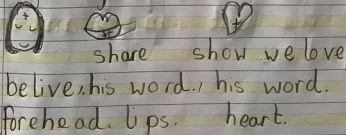 share show we love
belive, his word., his word.
forehead. lips. heart.